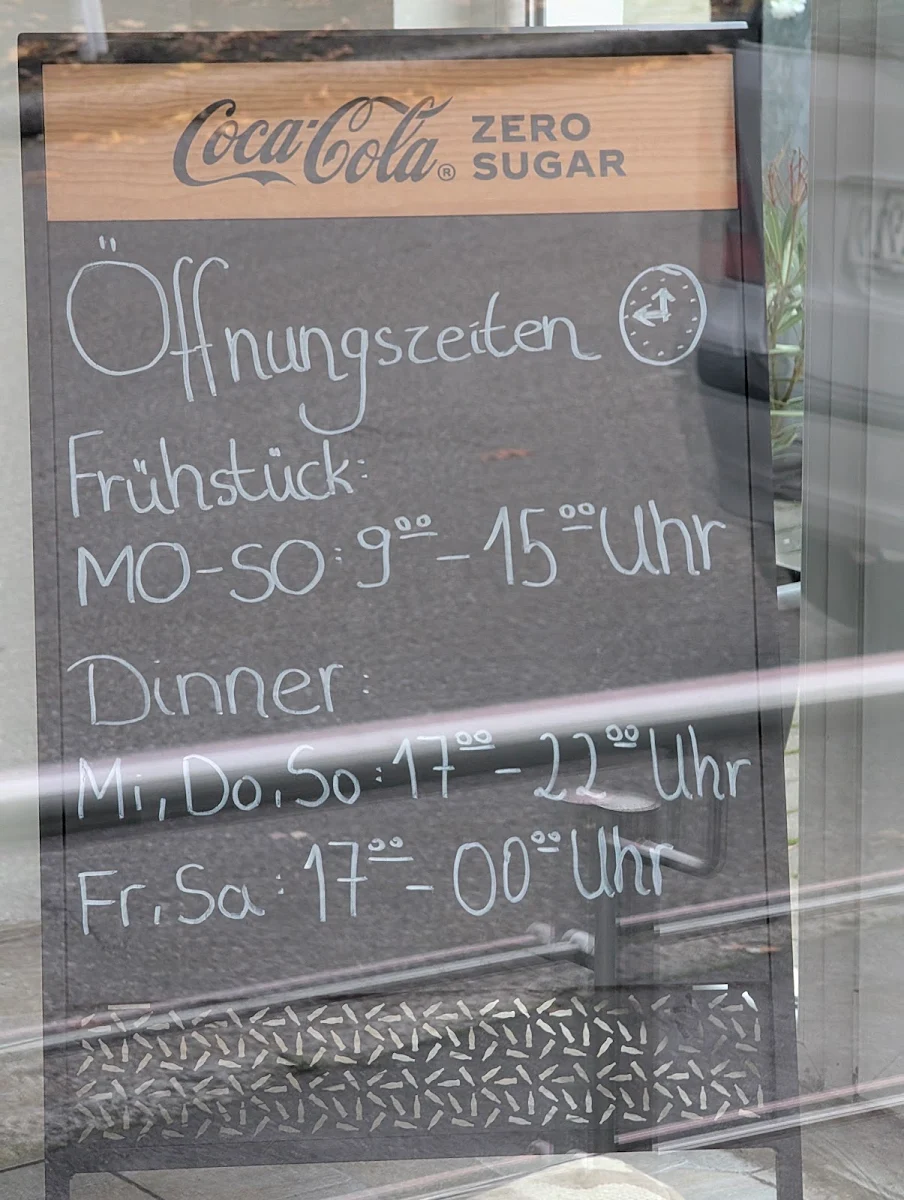 Coca-Cola® ZERO
SUGAR
Öffnungszeiten
Frühstück:
MO-SO: 9⁰⁰ - 15⁰⁰ Uhr
Dinner:
Mi, Do, So: 17⁰⁰ - 22⁰⁰ Uhr
Fr, Sa: 17⁰⁰ - 00⁰⁰ Uhr